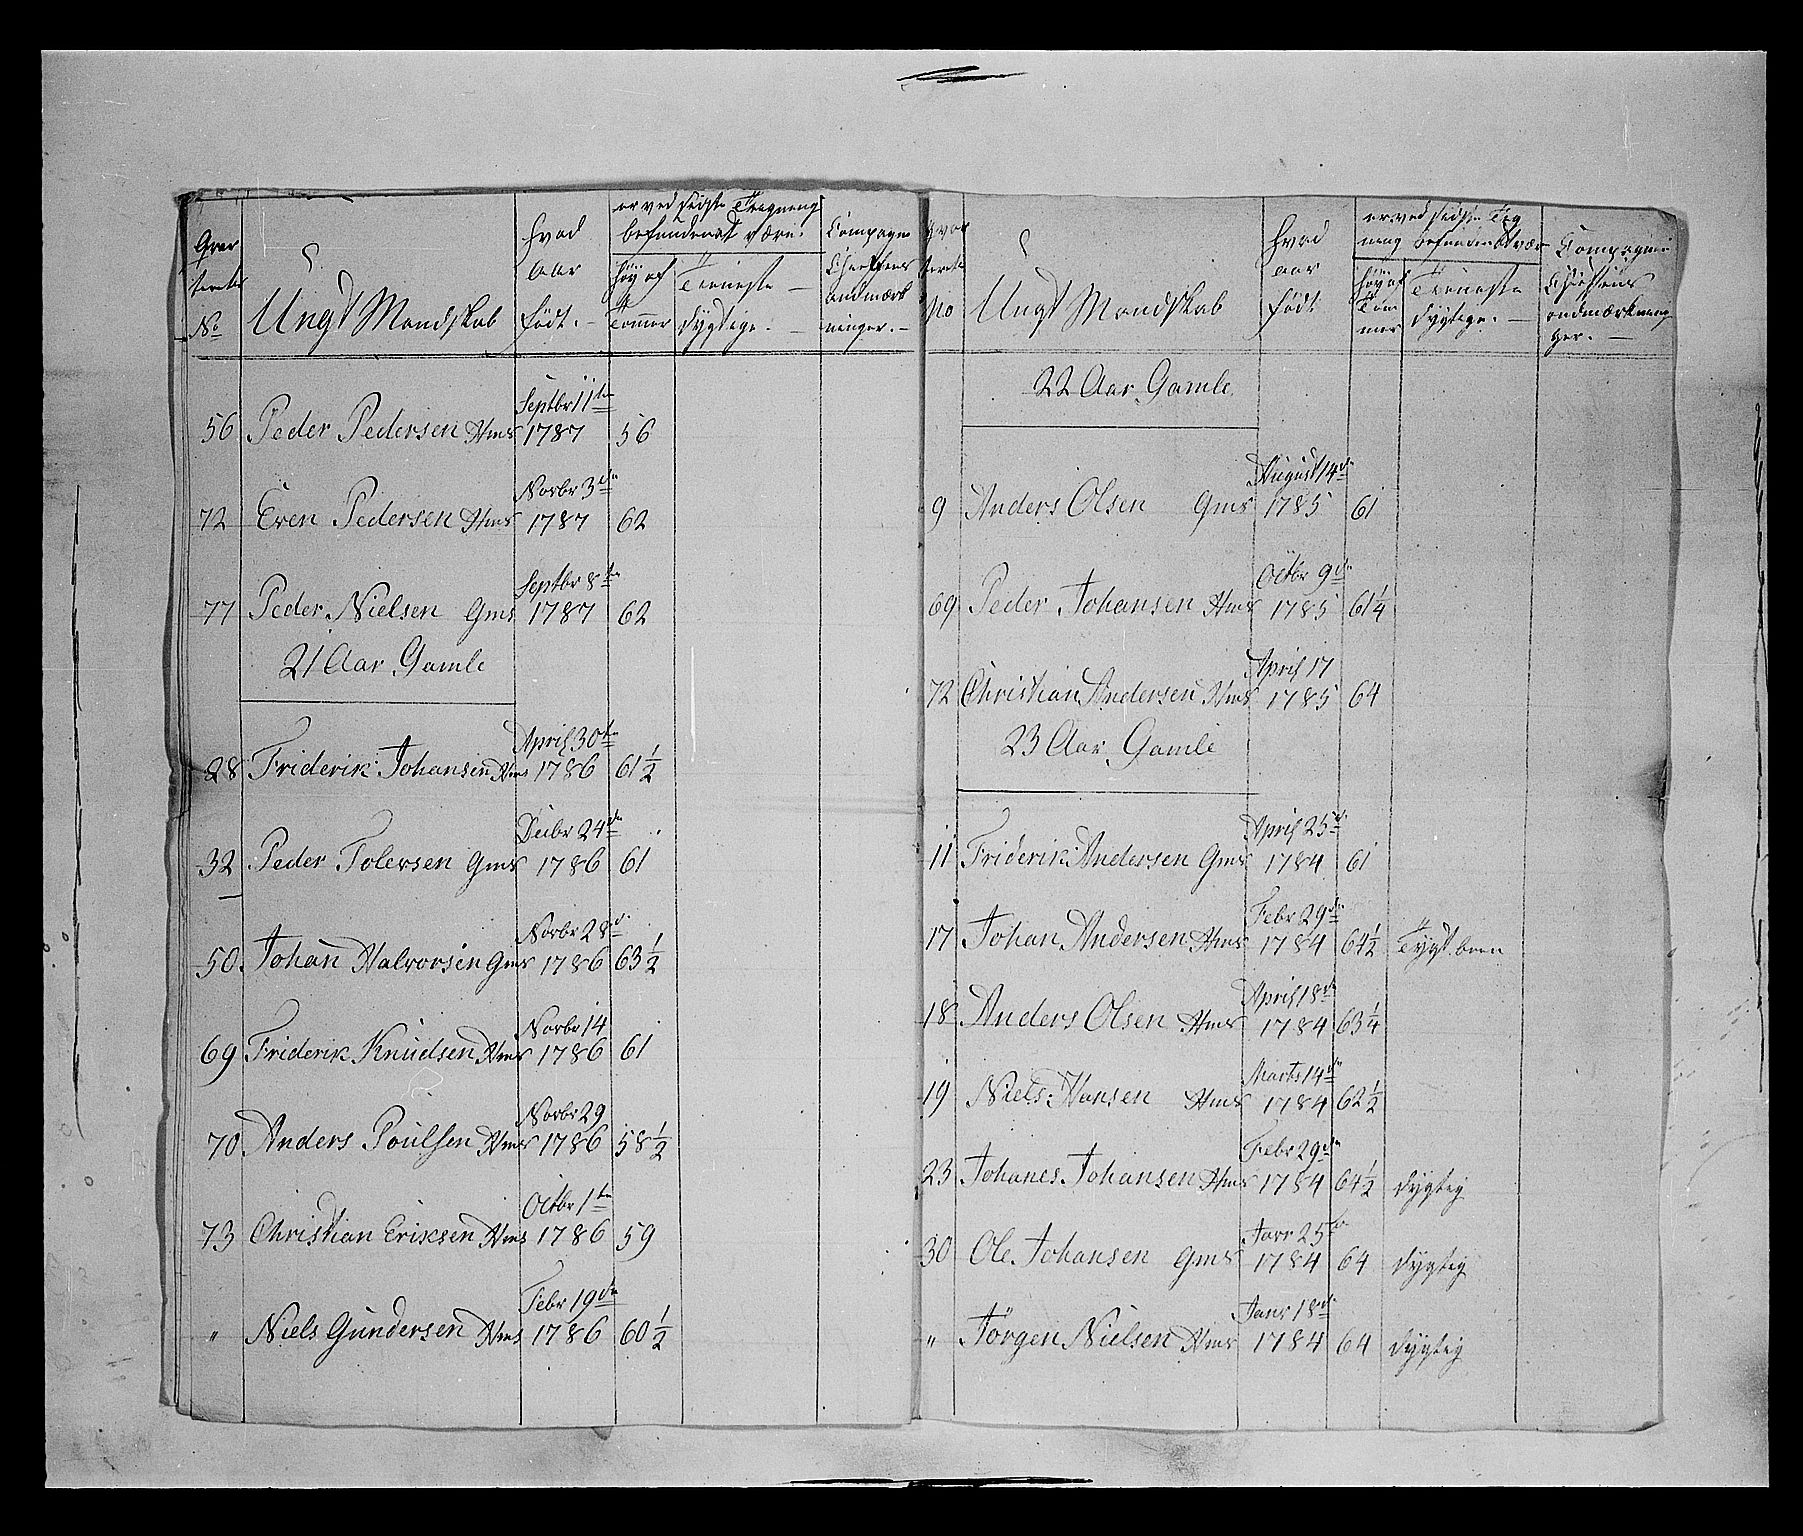 Qvar
terets
No
Ungt Mandskab
hvad
aar
født.
er ved sidste Tegning
befunden at være.
høy af
Tommer
Tieneste
dygtige.
Compagnie
Cheffens
Andmærk
ninger.
56 Peder Pedersen Hms Septbr 11te 1787 56
72 Even Pedersen Hms Novbr 3de 1787 62
77 Peder Nielsen Gms Septbr 8te 1787 62
21 Aar Gamle
28 Friderik Johansen Hms April 30te 1786 61 1/2
32 Peder Tolersen Gms Decbr 24de 1786 61
50 Johan Halvorsen Gms Novbr 28de 1786 63 1/2
69 Friderik Knudsen Hms Novbr 14 1786 61
70 Anders Poulsen Hms Novbr 29 1786 58 1/2
73 Christian Eriksen Hms Octbr 1te 1786 59
" Niels Gundersen Hms Febr 19de 1786 60 1/2
Qvar
terets
No
Ungt Mandskab
hvad
aar
født
er ved sidste Teg
ning befundet vær
høy af
Tom
mer
Tieneste
dygtige.
Compagnie
Chefens
andmærkning
ger.
22 Aar Gamle
9 Anders Olsen Gms August 14de 1785 61
69 Peder Johansen Hms Octbr 9de 1785 61 1/4
72 Christian Andersen Hms April 17 1785 64
23 Aar Gamle
11 Friderik Andersen Gms April 25de 1784 61
17 Johan Andersen Hms Febr 29de 1784 64 1/2
18 Anders Olsen Hms April 18de 1784 63 1/4
19 Niels Hansen Hms Marts 14de 1784 62 1/2
23 Johanes Johansen Hms Febr 29de 1784 64 1/2 dygtig
30 Ole Johansen Gms Janr 25te 1784 64 dygtig
" Jörgen Nielsen Hms Janr 18de 1784 64 dygtig